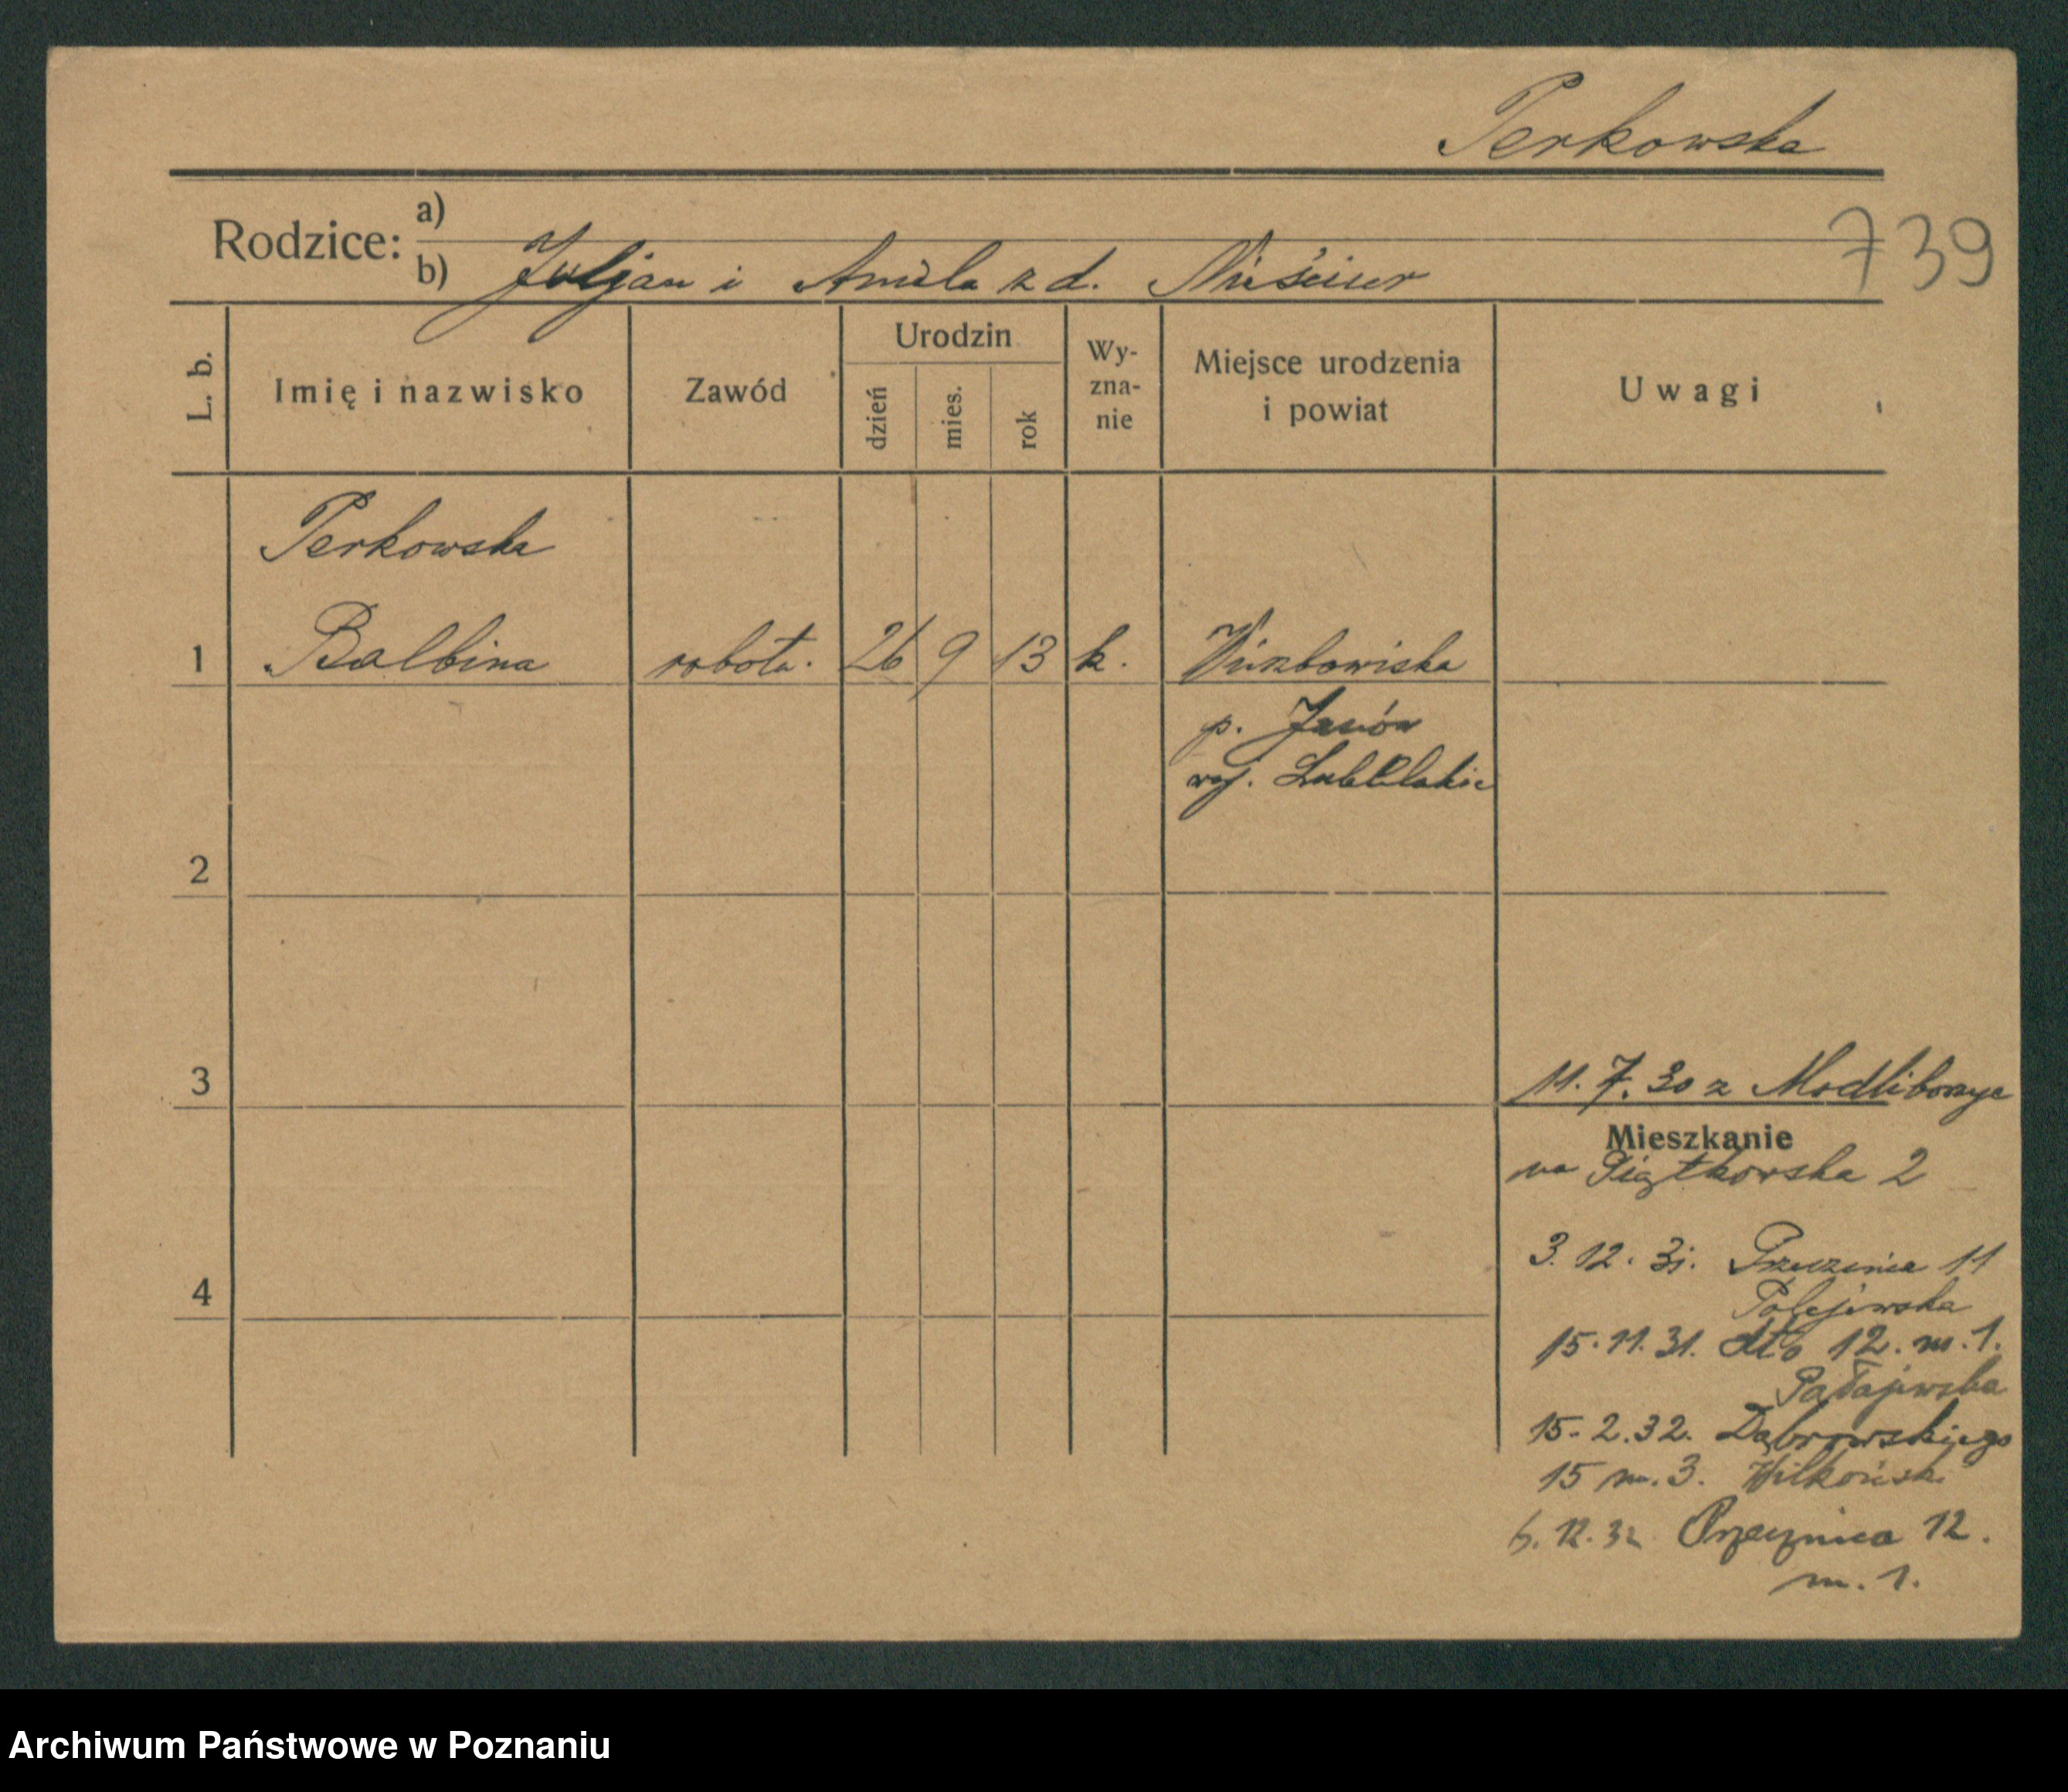 Perkowska
739
Rodzice:
a)
b) Juljan i Aniela z d. Niściur
L. b.
Imię i nazwisko
Zawód
Urodzin
dzień
mies.
rok
Wy-
zna-
nie
Miejsce urodzenia
i powiat
Uwagi
Perkowska
1 Balbina robotn. 26 9 13 k. Wierzbowiska
p. Janów
woj. Lubelskie
2
3
11. 7. 30 z Modliborzyc
Mieszkanie
na Piątkowska 2
4
3. 12. 31. Przecznica 11
15. 11. 31. dto 12. m. 1.
15. 2. 32. Dąbrowskiego
15 m. 3.
6. 12. 32 Przecznica 12.
m. 1.
Archiwum Państwowe w Poznaniu